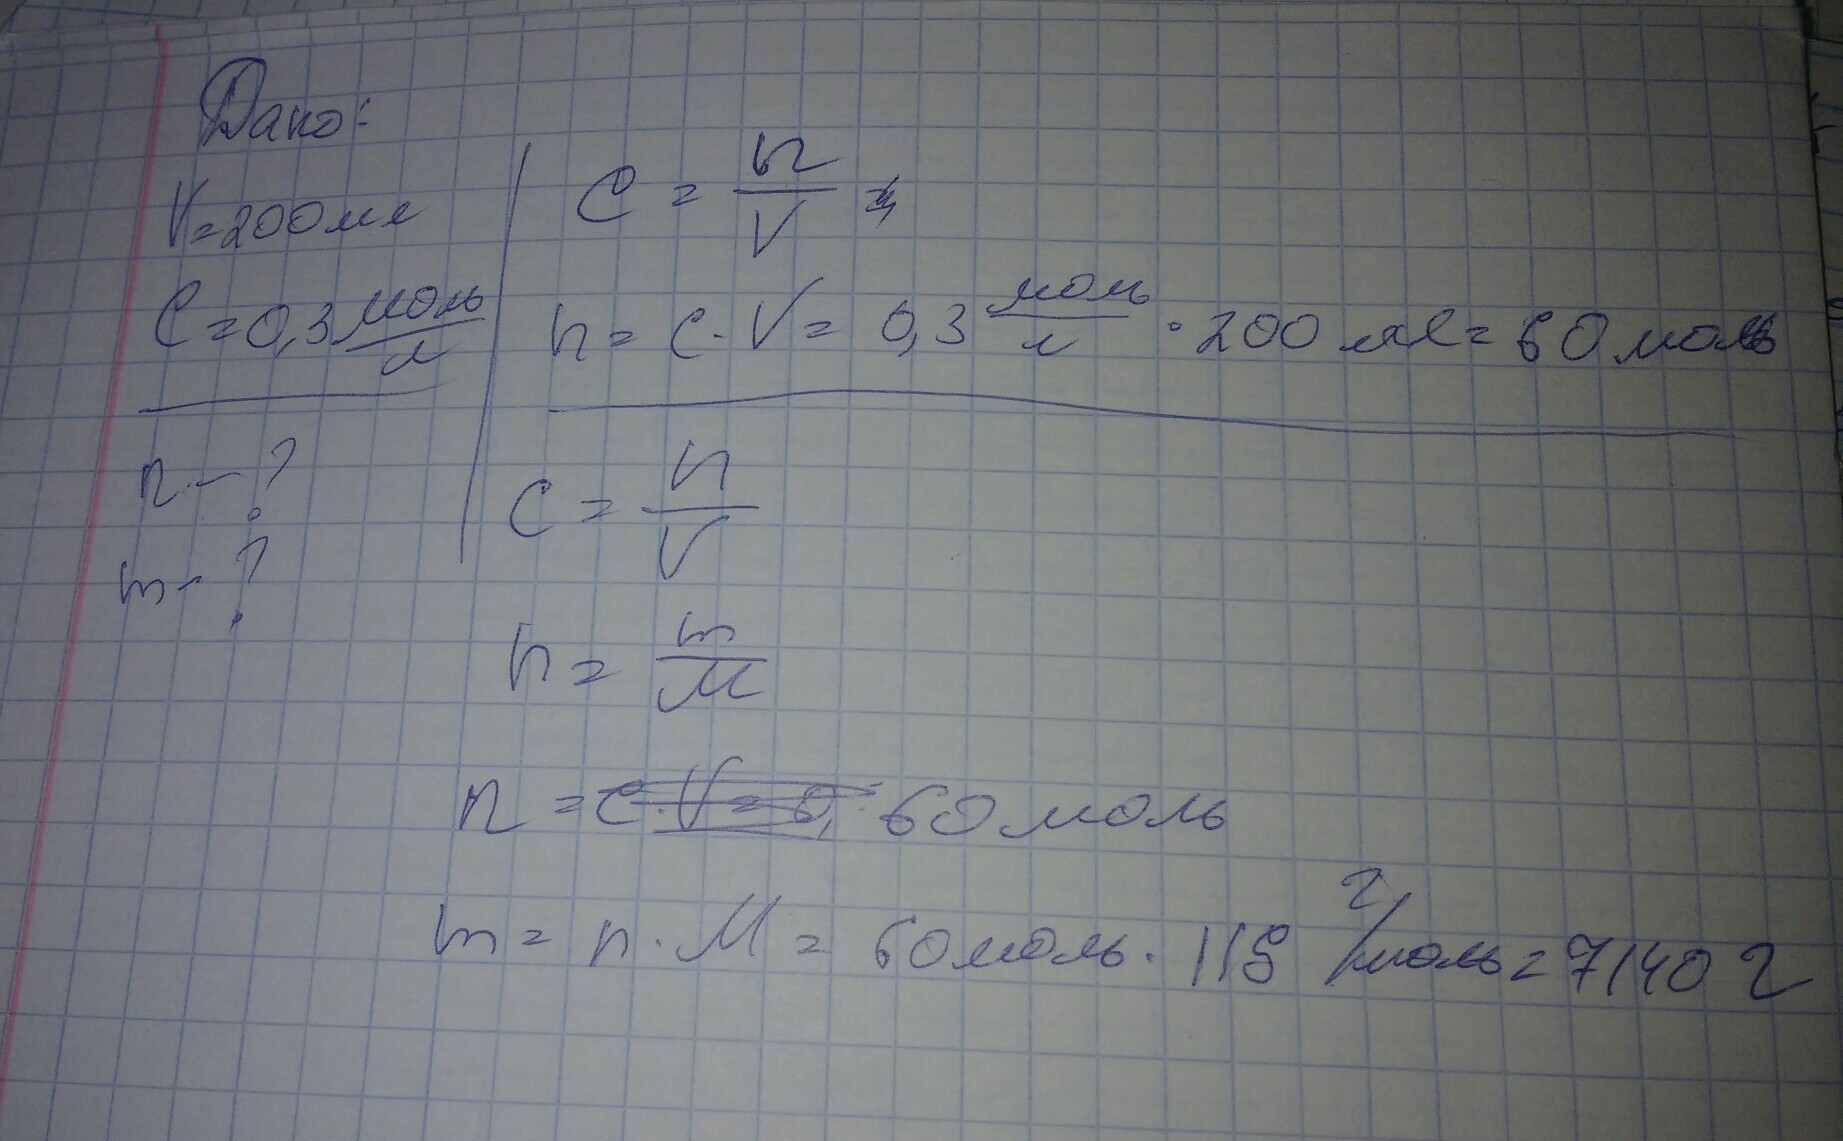 Дано:
V=200мл
C=0,3 моль/л
n-?
m-?
C = n/V =
n = c·V = 0,3 моль/л · 200 мл = 60 моль
C = n/V
n = m/M
n = 60 моль
m = n·M = 60 моль · 119 г/моль = 7140 г